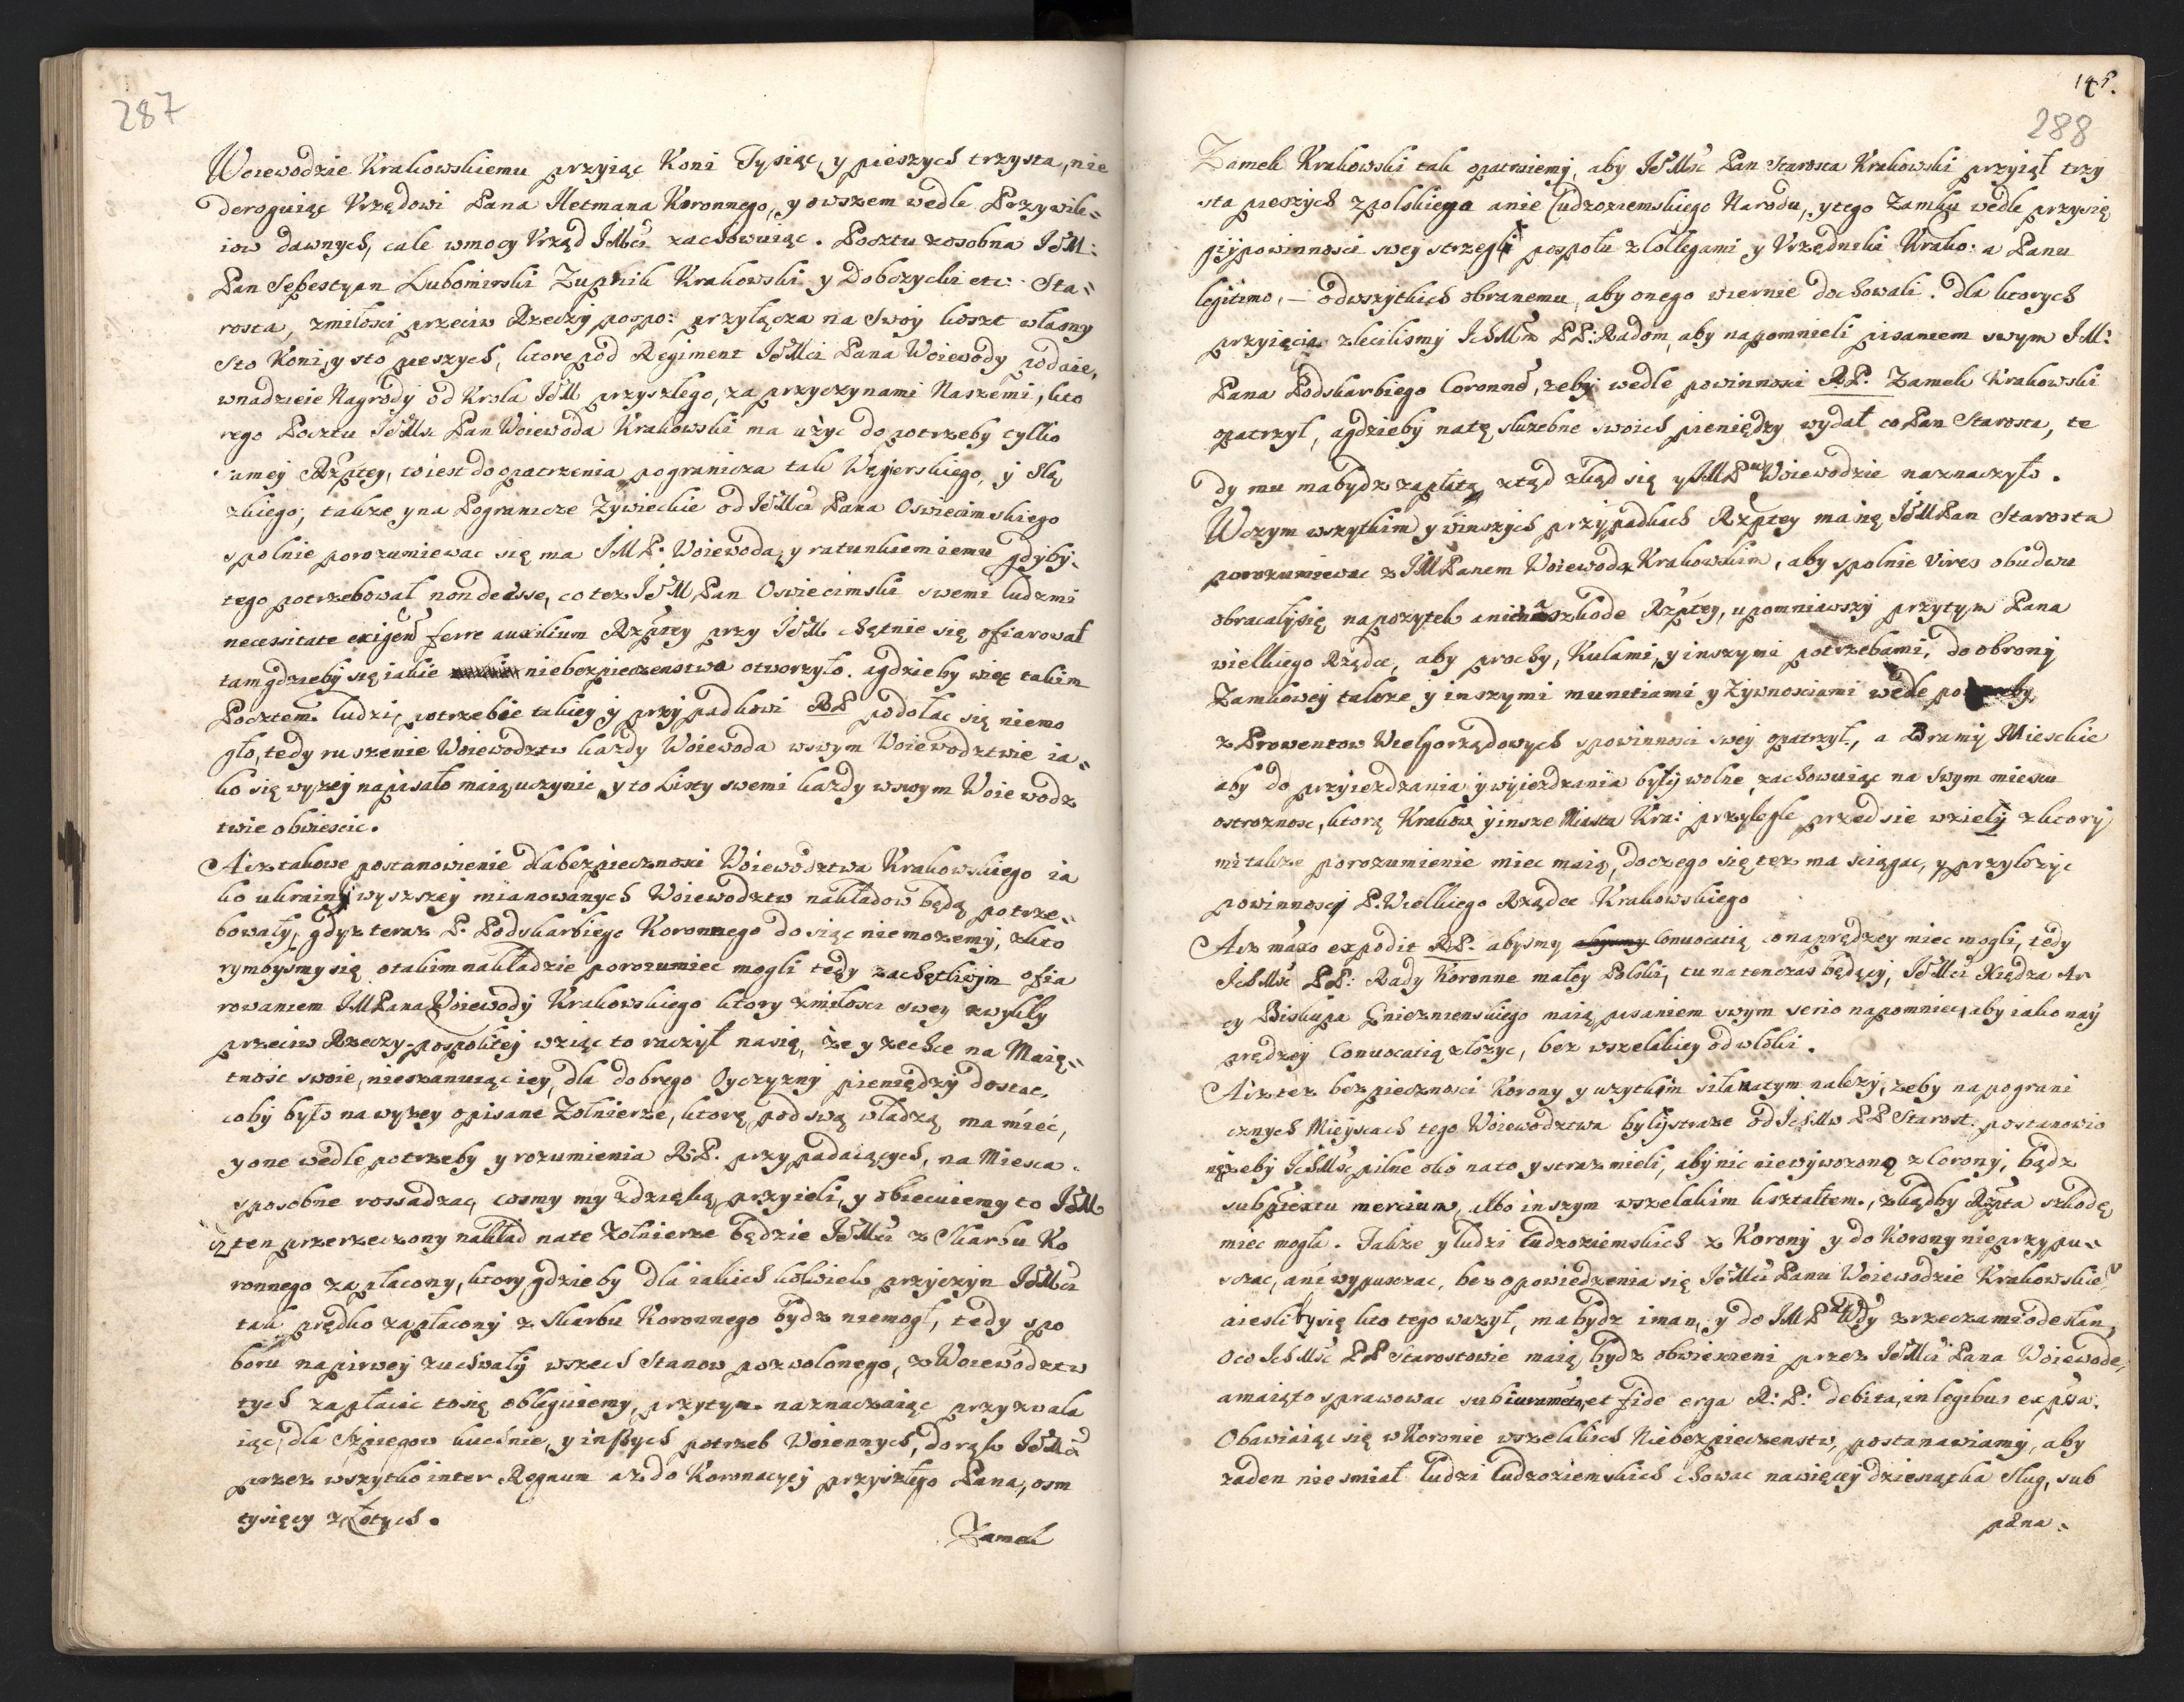 287
Woiewodzie Krakowskiemu przyiąc Koni Tysiąc, y pieszych trzysta, nie
deroguiąc Vrzędowi Pana Hetmana Koronnego, y owszem wedle Przywile=
iow dawnych, cale w mocy Vrząd JMści zachowuiąc. Pocztu zosobna JéM:
Pan Sebestyan Lubomirski Zupnik Krakowski y Dobczycki etc: Sta=
rosta, zmiłosci przeciw Rzeczy pospo: przyłącza na Swoy koszt własny
Sto Koni, y sto pieszych, ktore pod Regiment JéMci Pana Woiewody podaie,
wnadzieie Nagrody od Krola JéM przyszłego, za przyczynami Naszemi, kto
rego Pocztu JéMsc Pan Woiewoda Krakowski ma użyc do potrzeby tylko
samey Rzptey, to iest do opatrzenia pogranicza tak Węgierskiego, y Slą
zkiego; takze y na Pogranicze Zywieckie od JéMci Pana Oswiecimskiego
spolnie porozumiewac się ma JM P: Woiewoda, y ratunkiem iemu gdyby
tego potrzebował non deesse, co tez JéM Pan Oswiecimski swemi ludzmi
necessitate exigen ferre auxilium Rzptey przy JéM chętnie się ofiarował
tam gdzieby się iakie niebezpieczenstwo otworzyło. a gdzie by więc takim
Pocztem ludzi, potrzebie takiey y przypadkowi RP podołac się niemo
gło, tedy ruszenie Woiewodztw kazdy Woiewoda wswym Woiewodztwie ia=
ko się wyzey napisało maią uczynic, y to Listy swemi kazdy wswym Woiewodz
twie obwiescic.
A isz takowe postanowienie dla bezpiecznosci Woiewodztwa Krakowskiego ia
ko ukrainy wyszszey mianowanych Woiewodztw nakładow będą potrze=
bowały, gdyz teraz P: Podskarbiego Koronnego dosiąc niemozemy, zkto
rymbysmy się o takim nakładzie porozumiec mogli tedy zachętliwym ofia
rowaniem JM Pana Woiewody Krakowskiego ktory zmiłosci swey zwykły
przeciw Rzeczy-pospolitey wziąc to raczył na się, że y zechce na Maię=
tnosc swoie, nieszanuiąc iey, dla dobrego Oyczyzny pieniędzy dostac,
coby było na wyzey opisane Zołnierze, ktorę pod swą władzą ma miéć,
y one wedle potrzeby y rozumienia R:P. przypadaiących, na Miesca
sposobne rossadzac, cosmy my zdzięką przyieli, y obiecuiemy to JéM
isz ten przerzeczony nakład na te Zołnierze będzie JéMci z Skarbu Ko
ronnego zapłacony, ktory gdzieby dla iakich kolwiek przyczyn JéMci
tak prędko zapłacony z Skarbu Koronnego bydz niemogł, tedy spo
boru napirwey zuchwały wszech Stanow pozwolonego, z Woiewodztw
tych zapłacic to się obliguiemy, przytym naznaczaiąc przyzwala
iąc, dla Szpiegow kuchnie, y inßych potrzeb Woiennych, do rąk JéMci
przez wszytko inter Regnum az do Koronacyey przyszłego Pana, osm
tysięcy złotych.
Zamek
145.
288
Zamek Krakowski tak opatruiemy, aby JéMsc Pan Starosta Krakowski przyiął trzy
sta pieszych zpolskiego a nie Cudzoziemskiego Narodu, y tego Zamku wedle przysię
gi y powinnosci swey strzegli pospołu z Collegami y Vrzędniki Krako: a Panu
legitimo, – od wszytkich obranemu, aby onego wiernie dochowali. dla ktorych
przyięcia zlecilismy IchMćm PP: Radom, aby napomnieli pisaniem swym JM:
Pana Podskarbiego Coronné, zeby wedle powinnosci RP. Zamek Krakowski
opatrzył, a gdzieby na tę słuzebne swoich pieniędzy wydał co Pan Starosta, te
dy mu ma bydz zapłatą ztąd zkąd się y JMPu Woiewodzie naznaczyło.
Wczym wszytkim y winszych przypadkach Rzptey ma się JéM Pan Starosta
porozumiewac z JM Panem Woiewodą Krakowskim, aby spolnie vires obudwu
obracały się na pozytek a nie na szkode Rzptey, upomniawszy przytym Pana
wielkiego Rządce, aby prochy, Kulami, y inszymi potrzebami, do obrony
Zamkowey takze y inszymi munitiami y zywnosciami wedle potrzeby
z Prowentow Wielgorządowych spowinnosci swey opatrzył, a Bramy Miesckie
aby do przyiezdzania y wyiezdzania były wolne, zachowuiąc na swym miescu
ostroznosc, ktorą Krakow y insze Miasta Kra: przyległe przed sie wzieły z ktory
mi takze porozumienie miec maią, do czego się tez ma sciągac, y przyłozyc
powinnosc P. Wielkiego Rządce Krakowskiego
A isz máxo expedit RP. abysmy Conuocatią co naprędzey miec mogli, tedy
IchMśc PP: Rady Koronne małey Polski, tu na tenczas będący, JéMci Xiędza Ar
cy Biskupa Gnieznienskiego maią pisaniem swym serio napomniec, aby iako nay
prędzey Conuocatią złozyc, bez wszelakiey odwłoki.
A isz tez bezpiecznosci Korony y wszytkim siła na tym nalezy, zeby na pograni
cznych Mieyscach tego Woiewodztwa były straze od IchMw PP Starost. postanowio
ne, zeby IchMśc pilne oko na to y straz mieli, aby nic niewywozono z Corony, bądz
sub prextu mercium, albo inszym wszelakim kształtem, zkądby Rzpta szkodę
miec mogła. Takze y ludzi Cudzoziemskich z Korony y do Korony nieprzypu=
szczac, ani wypuszczac, bez opowiedzenia się JéMci Panu Woiewodzie Krakowskie
a iesliby się kto tego wazył, ma bydz iman, y do JM Pa Wdy z rzeczami odesłan
O co IchMśc PP Starostowie maią bydz obwiesczeni przez JéMci Pana Woiewode,
a maią to sprawowac sub iuraméto, et fide erga R: P: debita, in legibus expssa.
Obawiaiąc się w Koronie wszelakich Niebezpieczenstw, postanawiamy, aby
zaden nie smiał ludzi Cudzoziemskich chowac nawięcey dziesiątka Sług, sub
pæna=